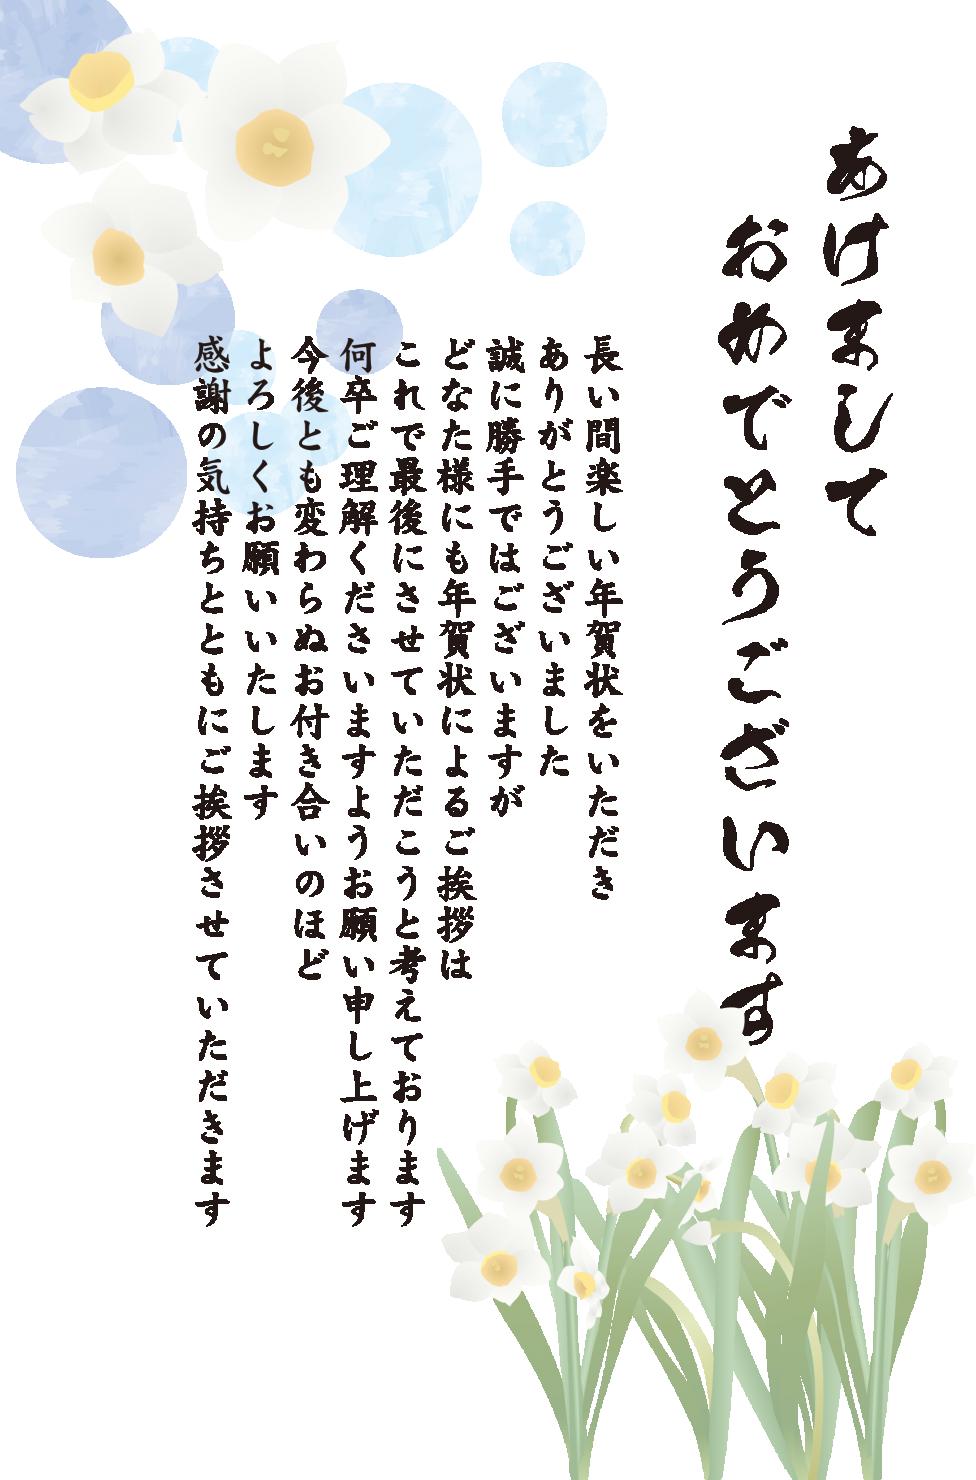 あけまして
おめでとうございます
長い間楽しい年賀状をいただき
ありがとうございました
誠に勝手ではございますが
どなた様にも年賀状によるご挨拶は
これで最後にさせていただこうと考えております
何卒ご理解くださいますようお願い申し上げます
今後とも変わらぬお付き合いのほど
よろしくお願いいたします
感謝の気持ちとともにご挨拶させていただきます